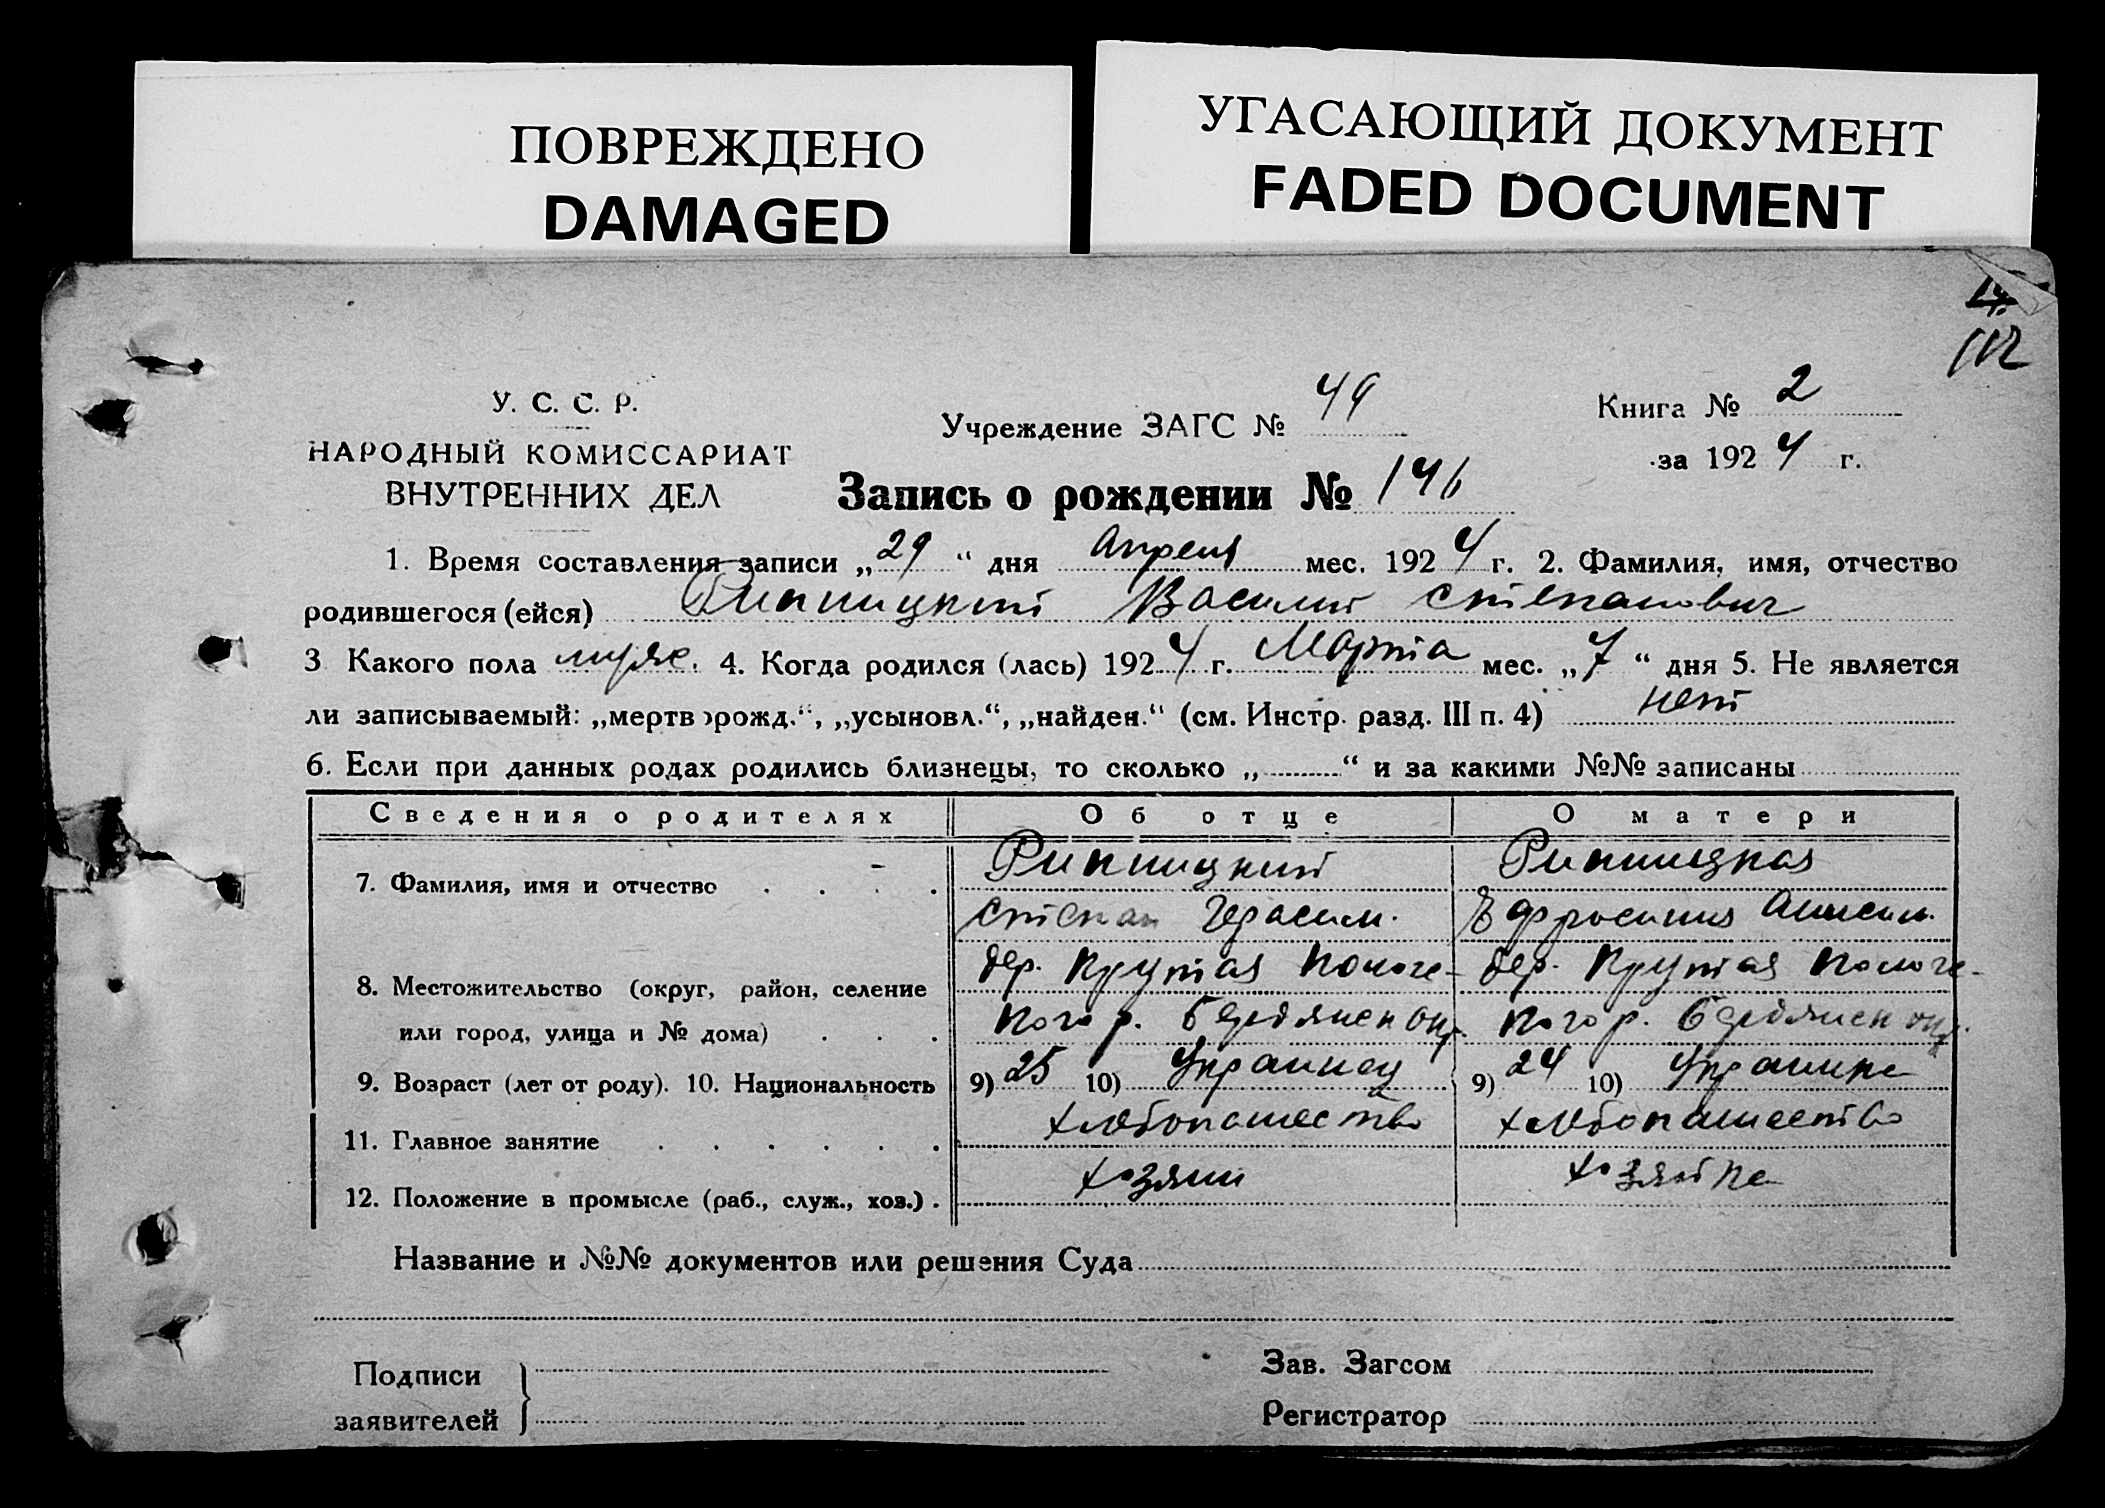 ПОВРЕЖДЕНО
DAMAGED
УГАСАЮЩИЙ ДОКУМЕНТ
FADED DOCUMENT
14.
112
У. С. С. Р.
НАРОДНЫЙ КОМИССАРИАТ
ВНУТРЕННИХ ДЕЛ
Учреждение ЗАГС № 49
Книга № 2
за 1924 г.
Запись о рождении № 146
1. Время составления записи „29“ дня Апреля мес. 1924 г. 2. Фамилия, имя, отчество
родившегося (ейся) Рипницкий Василий Степанович
3 Какого пола муж. 4. Когда родился (лась) 1924 г. Марта мес. „7“ дня 5. Не является
ли записываемый: „мертворожд.“, „усыновл.“, „найден.“ (см. Инстр. разд. III п. 4) нет
6. Если при данных родах родились близнецы, то сколько „ “ и за какими №№ записаны
Сведения о родителях Об отце О матери
7. Фамилия, имя и отчество Рипницкий Рипницкая
Степан Герасим. Ефросиния Анисим.
дер. Крутая Пологс- дер. Крутая Пологс-
8. Местожительство (округ, район, селение
или город, улица и № дома) кого р. Бердянск окр. кого р. Бердянск окр.
9. Возраст (лет от роду). 10. Национальность 9) 25 10) Украинец 9) 24 10) Украинка
11. Главное занятие хлебопашество хлебопашество
12. Положение в промысле (раб., служ., хоз.) хозяин хозяйка
Название и №№ документов или решения Суда
Подписи
заявителей
Зав. Загсом
Регистратор